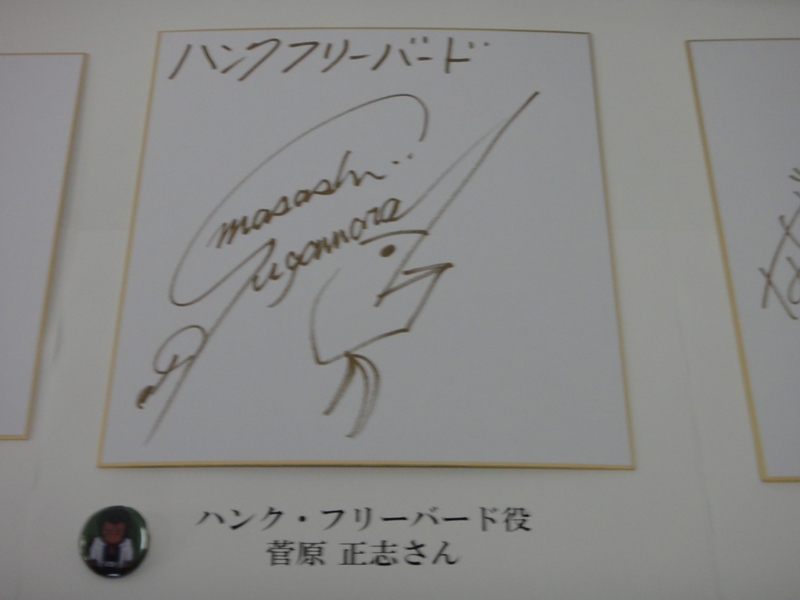 ハンクフリーバード
masashi
Sugannora
ハンク・フリーバード役
菅原 正志さん